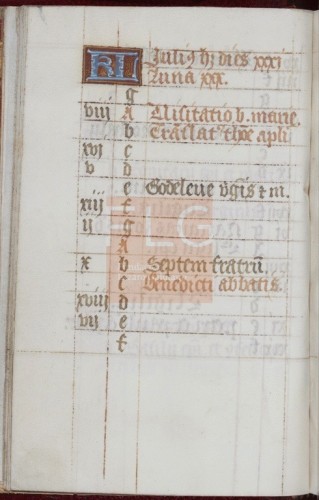 KL Juli9 hȝ dies xxxi
Luna xxx.
g
viii A Visitatio b. marie.
b Traslat thōe apli
xvj c
v d
e Godeleue vgis ⁊ m.
xiij f
ij g
A
x b Septem fratrū.
c Benedicti abbatis.
xviij d
vij e
f